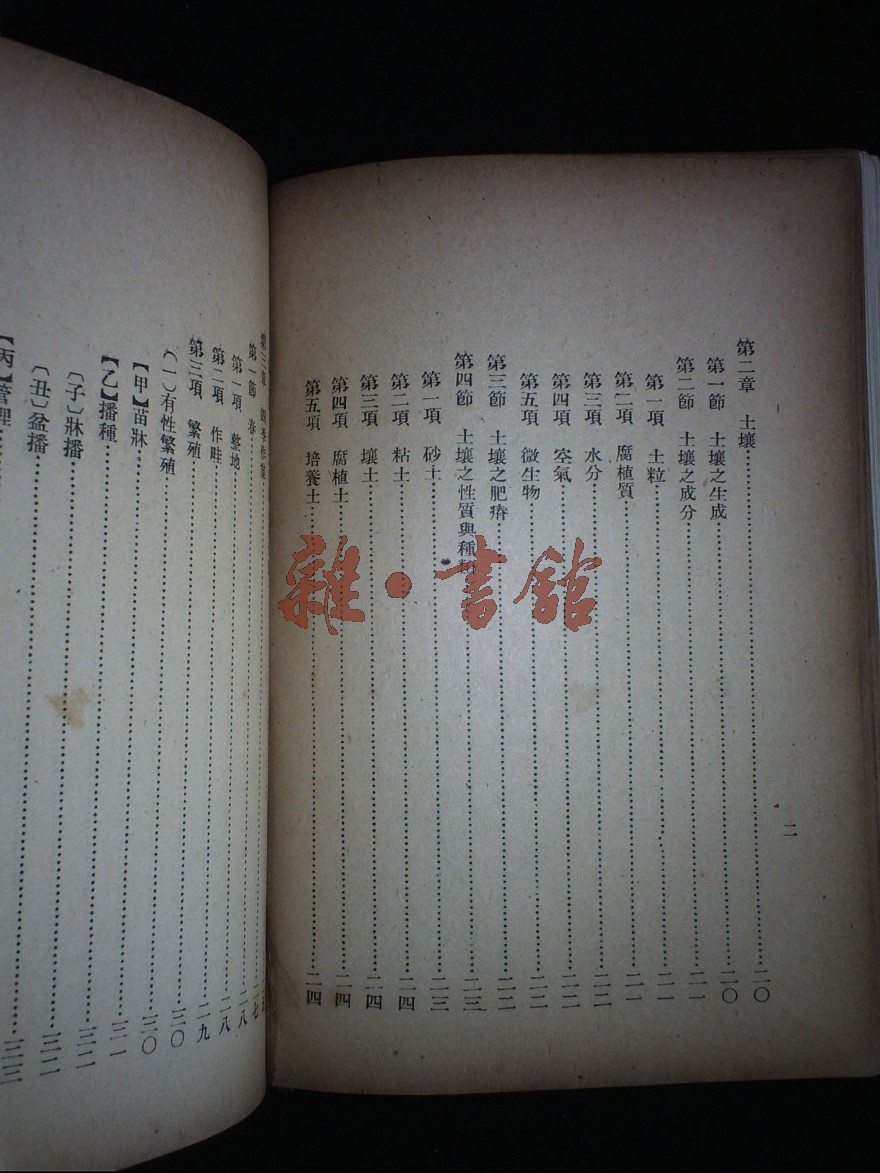 二
第二章 土壤……二〇
第一節 土壤之生成……二〇
第二節 土壤之成分……二一
第一項 土粒……二一
第二項 腐植質……二一
第三項 水分……二二
第四項 空氣……二二
第五項 微生物……二二
第三節 土壤之肥瘠……二二
第四節 土壤之性質與種類……二三
第一項 砂土……二三
第二項 粘土……二四
第三項 壤土……二四
第四項 腐植土……二四
第五項 培養土……二四
第三章 四季作業
第一節 春……二七
第一項 整地……二八
第二項 作畦……二八
第三項 繁殖……二九
(一)有性繁殖……三〇
【甲】苗牀……三〇
【乙】播種……三一
〔子〕牀播……三二
〔丑〕盆播……三二
【丙】管理……三三
雜·書館